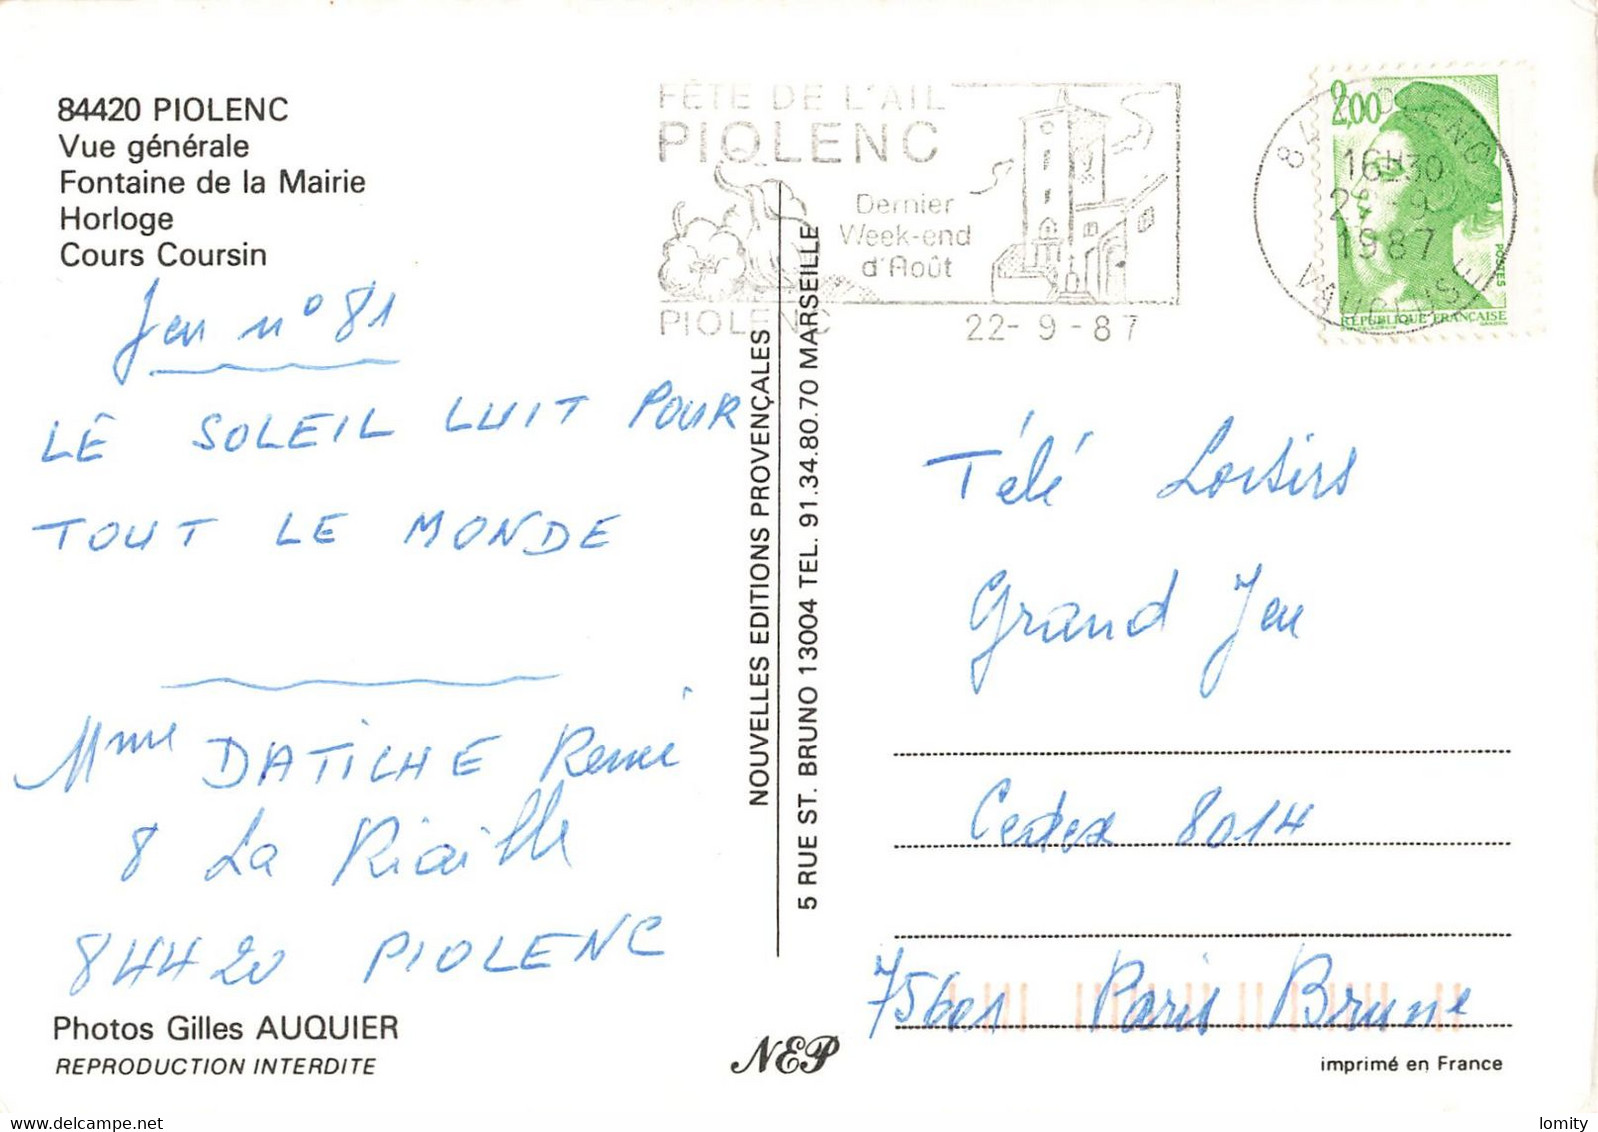 84420 PIOLENC
Vue générale
Fontaine de la Mairie
Horloge
Cours Coursin
Jeu n° 81
LE SOLEIL LUIT POUR
TOUT LE MONDE
Mme DATICHE René
8 La Riaille
84420 PIOLENC
Photos Gilles AUQUIER
REPRODUCTION INTERDITE
FÊTE DE L'AIL
PIOLENC
Dernier
Week-end
d'Août
PIOLENC
22-9-87
NOUVELLES EDITIONS PROVENÇALES
5 RUE ST. BRUNO 13004 TEL. 91.34.80.70 MARSEILLE
NEP
2,00
POSTES
REPUBLIQUE FRANÇAISE
84 PIOLENC
16H30
22-9
1987
VAUCLUSE
Télé Loisirs
Grand Jeu
Cedex 8014
75601 Paris Brune
imprimé en France
delcampe.net
lomity